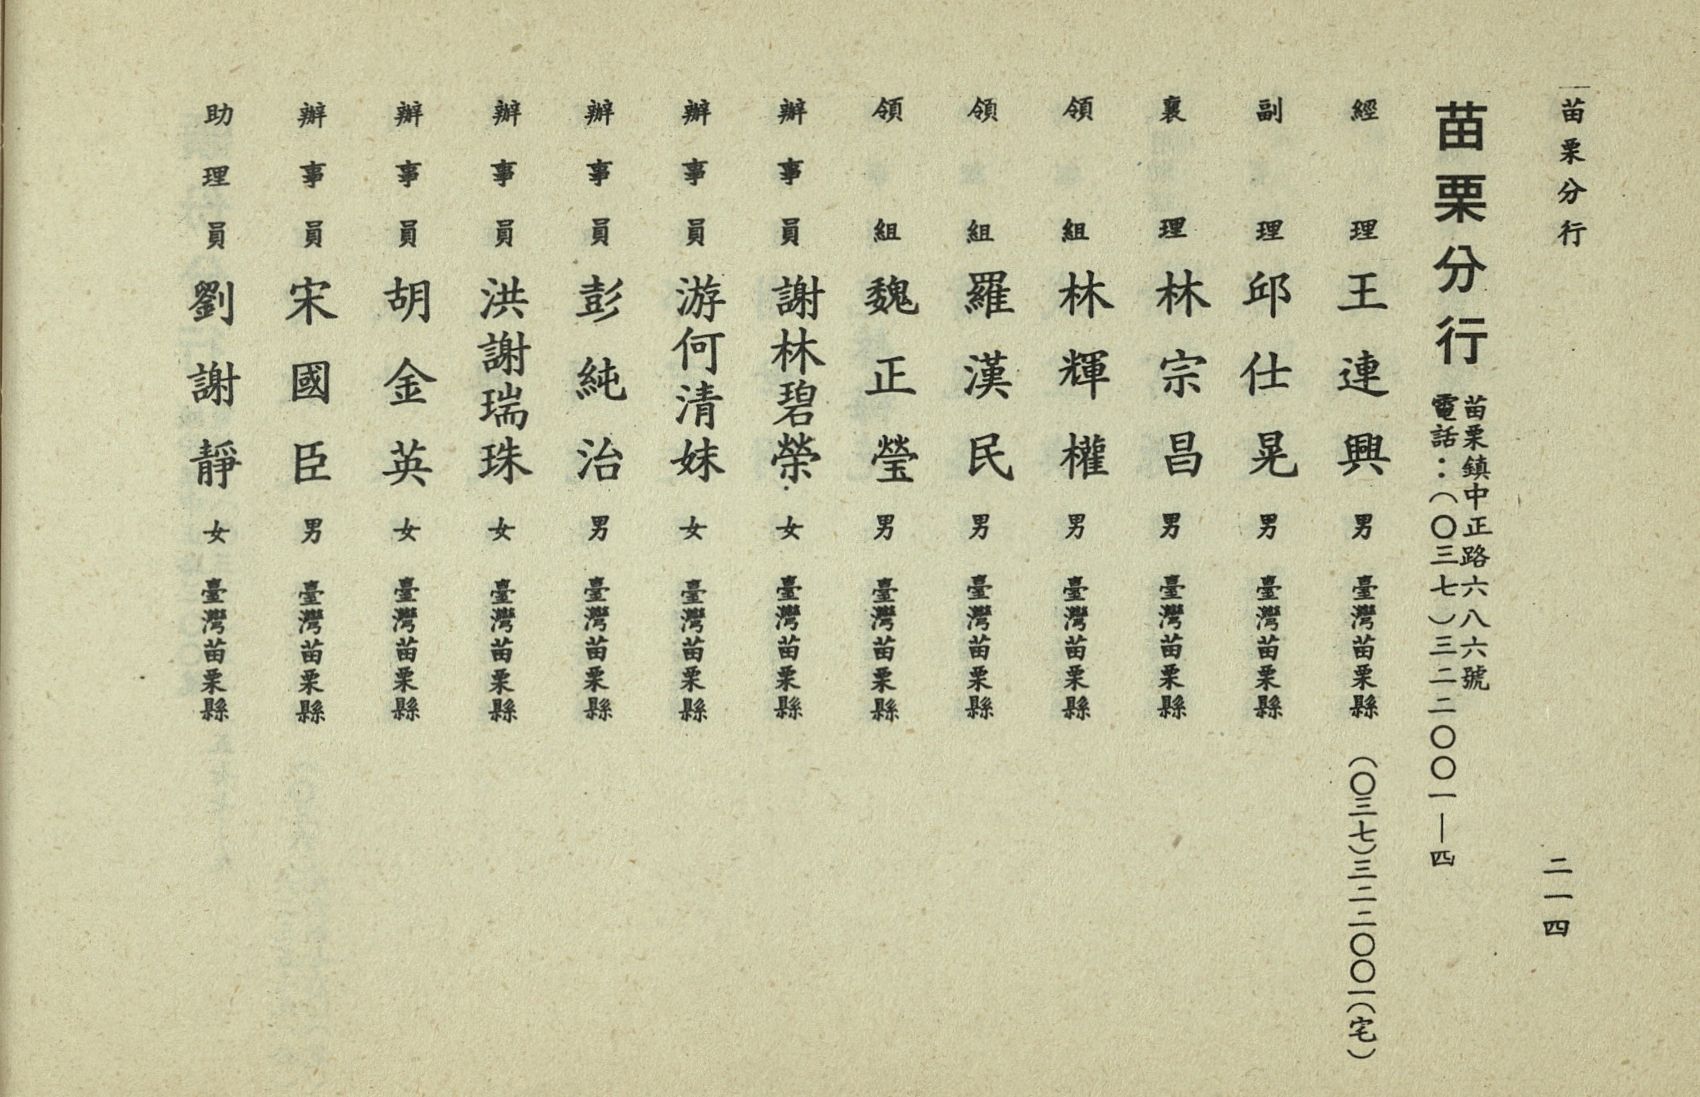 苗栗分行
二一四
苗栗分行
苗栗鎮中正路六八六號
電話：(〇三七)三二二〇〇一—四
經理王連興男臺灣苗栗縣(〇三七)三二二〇〇一(宅)
副理邱仕晃男臺灣苗栗縣
襄理林宗昌男臺灣苗栗縣
領組林輝權男臺灣苗栗縣
領組羅漢民男臺灣苗栗縣
領組魏正瑩男臺灣苗栗縣
辦事員謝林碧榮女臺灣苗栗縣
辦事員游何清妹女臺灣苗栗縣
辦事員彭純治男臺灣苗栗縣
辦事員洪謝瑞珠女臺灣苗栗縣
辦事員胡金英女臺灣苗栗縣
辦事員宋國臣男臺灣苗栗縣
助理員劉謝靜女臺灣苗栗縣